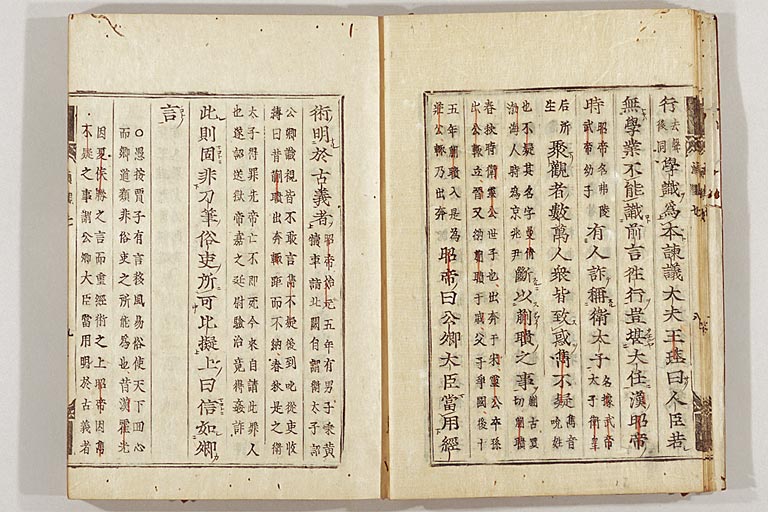 行去聲後同學識爲本諫議大夫王珪曰人臣若
無學業不能識前言徃行豈堪大任漢昭帝
時昭帝名弗陵武帝幼子有人詐稱衛太子名據武帝太子衛皇
后所生聚觀者數萬人衆皆致惑雋不疑雋音吮姓
也不疑其名字曼倩渤海人時爲京兆尹斷以蒯聵之事蒯古買切蒯聵
春秋時衛靈公世子也出奔于宋靈公卒孫出公輒立晉又納蒯聵于戚父子爭國後十
五年蒯聵入是爲莊公輒乃出奔昭帝曰公卿大臣當用經
術明於古義者昭帝始元五年有男子乘黃犢車詣北闕自謂衛太子詔
公卿識視皆不敢言雋不疑後到叱從吏收縛曰昔蒯聵出奔輒距而不納春秋是之衛
太子得罪先帝亡不即死今來自詣此罪人也遂詔送獄帝嘉之廷尉驗治竟得姦詐
此則固非刀筆俗吏所可比擬上曰信如卿
言
○愚按賈子有言移風易俗使天下回心而鄉道類非俗吏之所能爲也昔漢霍光
因夏侯勝之言而重經術之士昭帝因雋不疑之事謂公卿大臣當用明於古義者